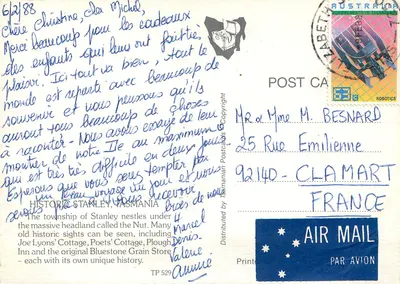 6/2/88
Chère Christina, Cher Michel,
Merci beaucoup pour les cadeaux
des enfants qui leur ont fait très
plaisir. Ici tout va bien, tout le
monde est reparti avec beaucoup de
souvenir et nous pensons qu'ils
auront tous beaucoup de choses
à raconter. Nous avons essayé de leur
montrer de notre Ile au maximum et
qui est très très difficile en deux jours.
Esperons que vous serez tentés par
un beau voyage un jour et nous
serons de vous recevoir
Bises de nous
4
Marcel
Denis
Valerie
Annie
HISTORIC STANLEY, TASMANIA
The township of Stanley nestles under
the massive headland called the Nut. Many
old historic sights can be seen, including
Joe Lyons' Cottage, Poets' Cottage, Plough
Inn and the original Bluestone Grain Store
- each with its own unique history.
TP 529
Distributed by Tasmanian Postcards Copyright
POST CA
ELIZABETH
AUSTRALIA
63c
ROBOTICS
Mr & Mme M. BESNARD
25 Rue Emilienne
92140 - CLAMART
FRANCE
AIR MAIL
PAR AVION
Printe